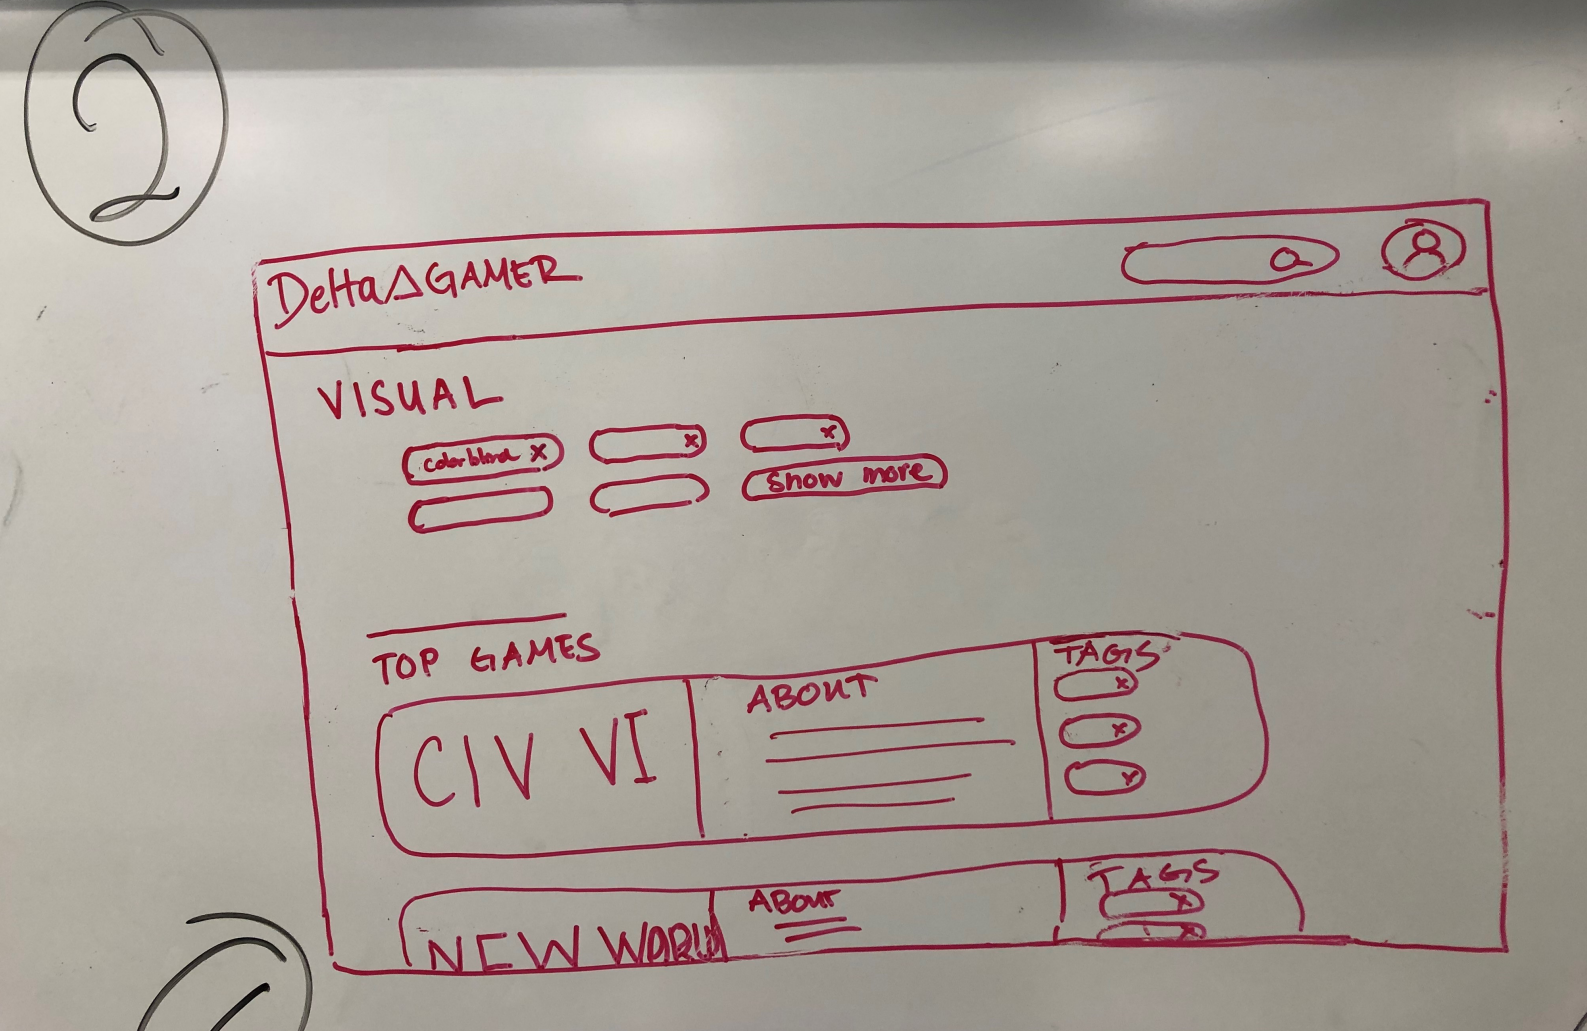 2
Delta△GAMER
VISUAL
colorblind x
x
x
Show more
TOP GAMES
CIV VI
ABOUT
TAGS
x
x
x
NEW WORLD
ABOUT
TAGS
x
x